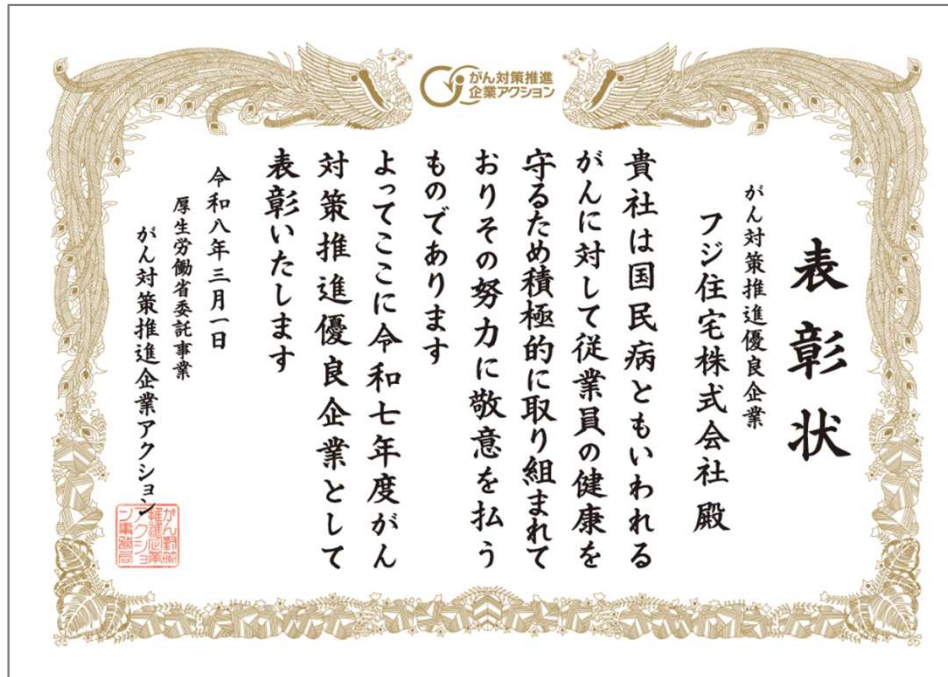 がん対策推進
企業アクション
表彰状
がん対策推進優良企業
フジ住宅株式会社 殿
貴社は国民病ともいわれる
がんに対して従業員の健康を
守るため積極的に取り組まれて
おりその努力に敬意を払う
ものであります
よってここに令和七年度がん
対策推進優良企業として
表彰いたします
令和八年三月一日
厚生労働省委託事業
がん対策推進企業アクション
がん対策
推進企業
アクショ
ン事務局